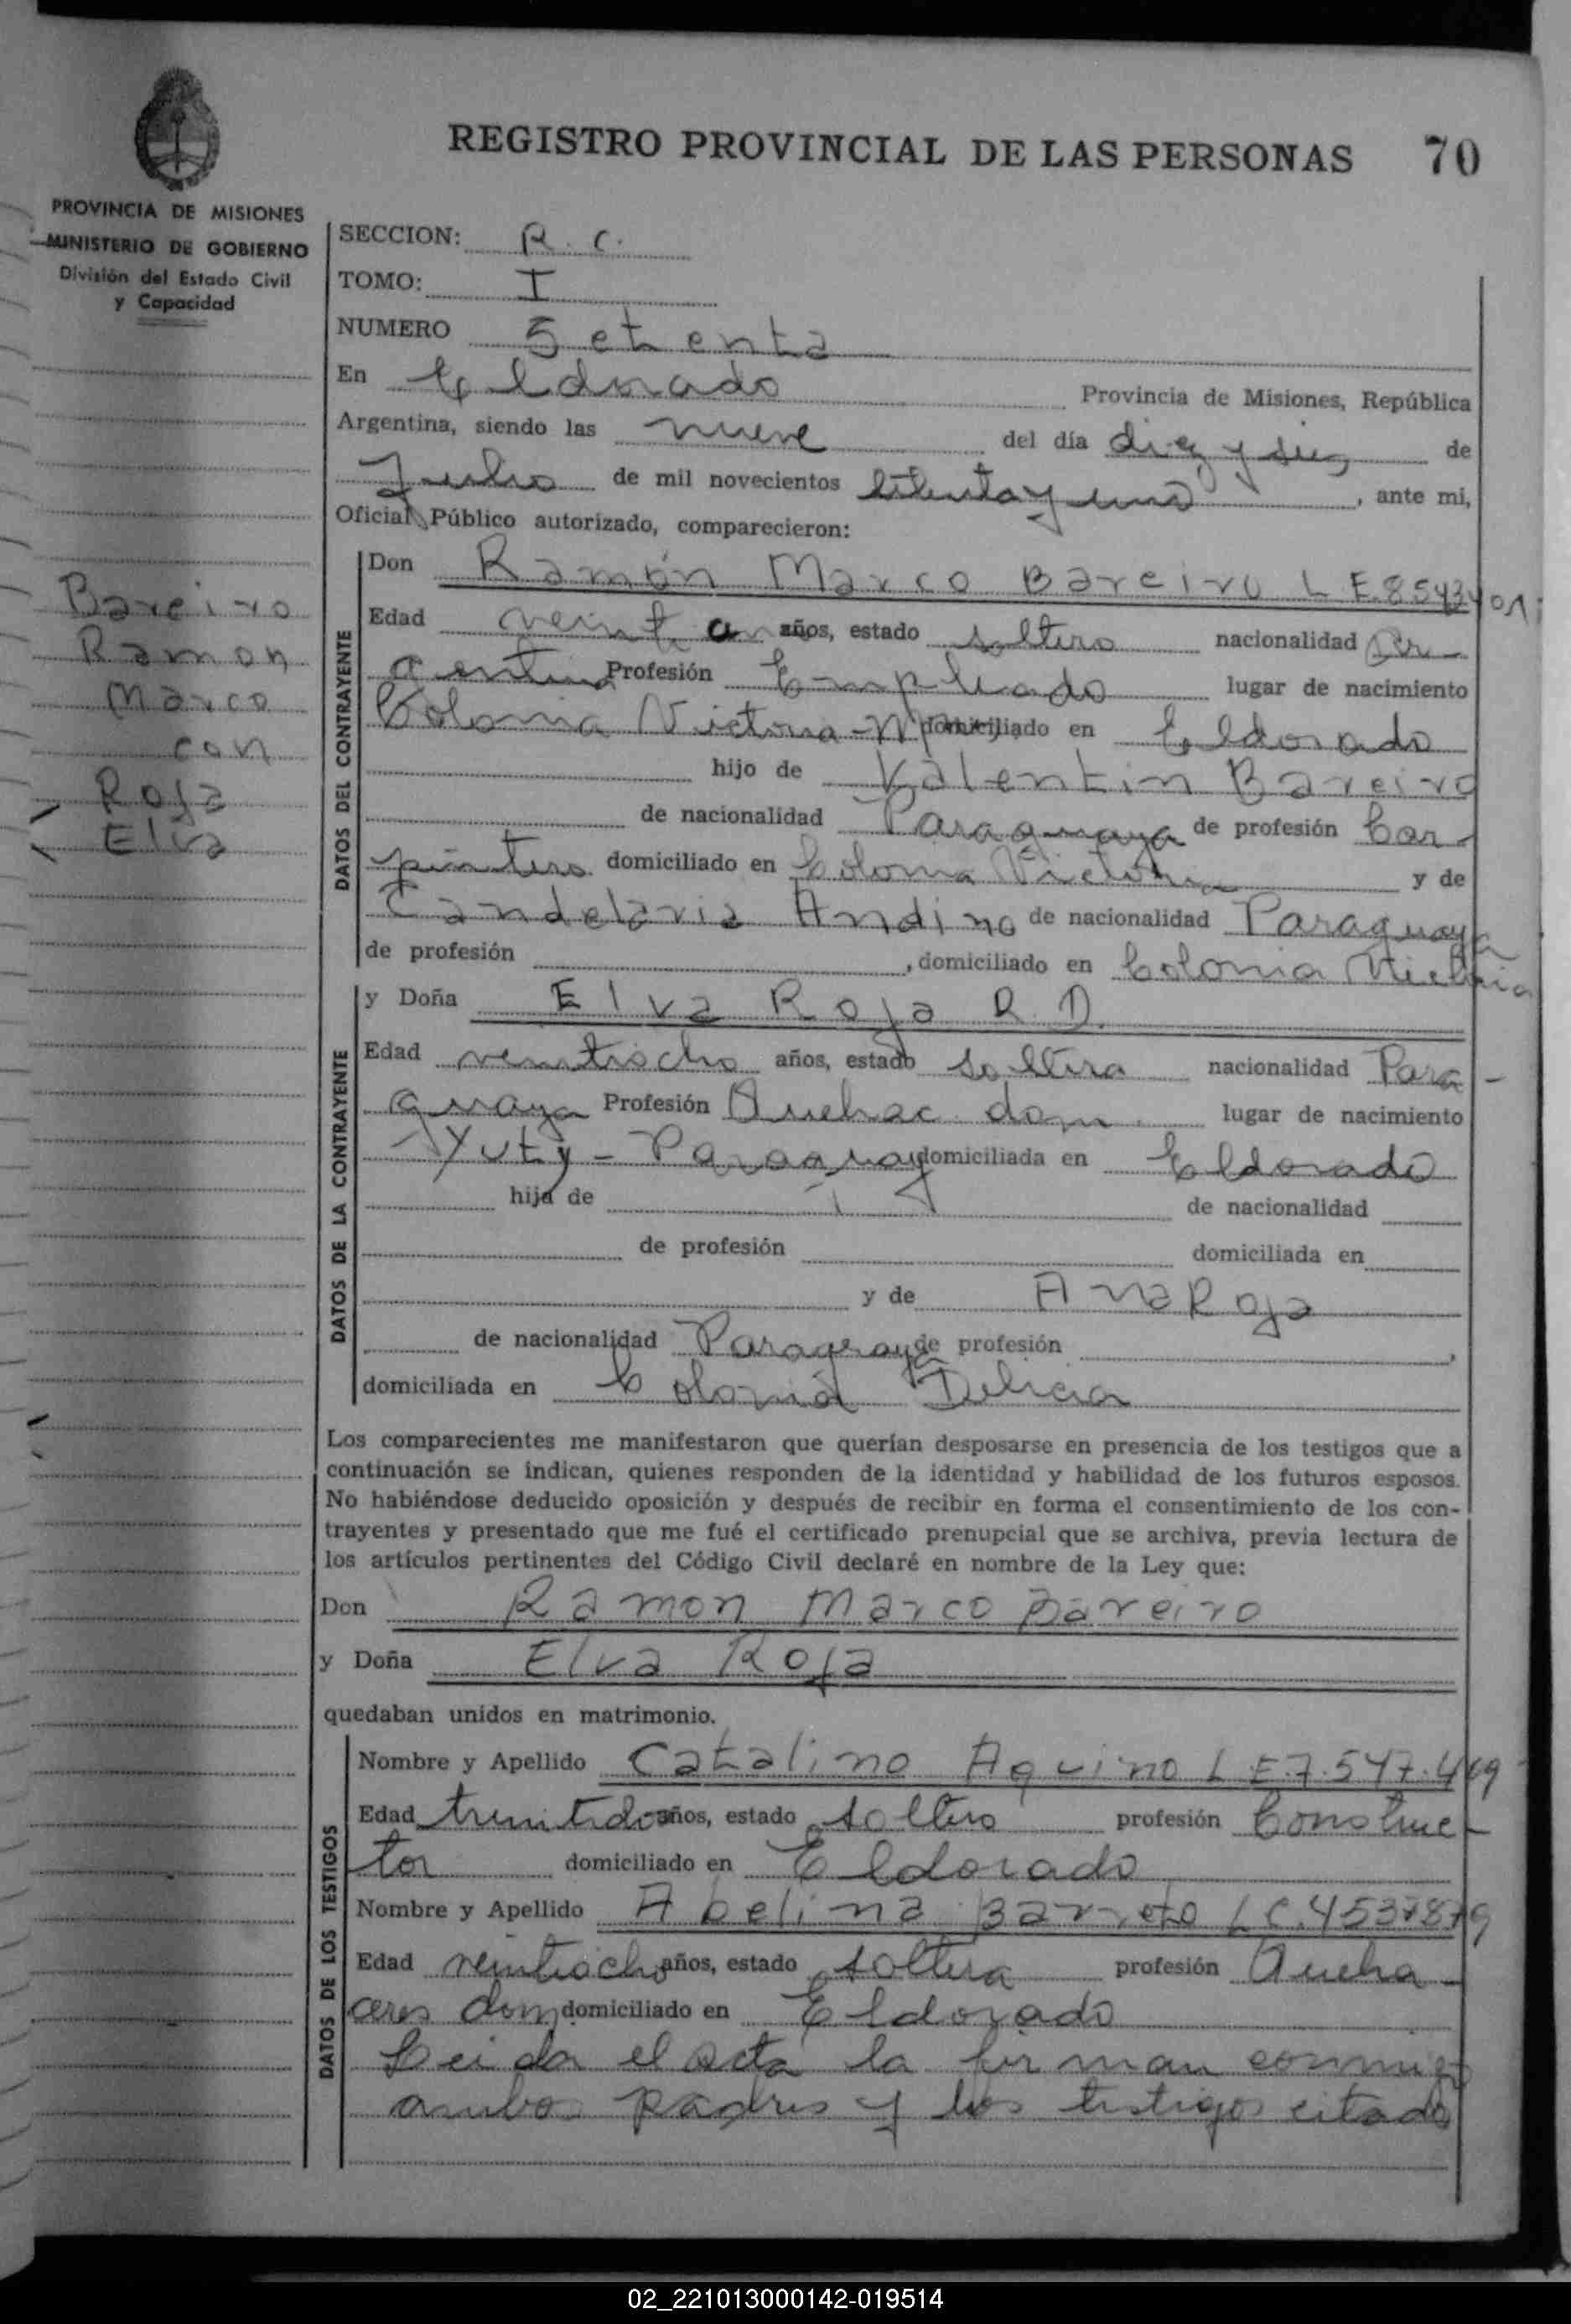 REGISTRO PROVINCIAL DE LAS PERSONAS 70
PROVINCIA DE MISIONES
MINISTERIO DE GOBIERNO
División del Estado Civil
y Capacidad
Bareiro
Ramon
Marco
con
Roja
Elva
SECCION: R. C.
TOMO: I
NUMERO Setenta
En Eldorado Provincia de Misiones, República
Argentina, siendo las nueve del día diez y seis de
Julio de mil novecientos setenta y uno, ante mi,
Oficial Público autorizado, comparecieron:
DATOS DEL CONTRAYENTE
Don Ramón Marco Bareiro L E.
Edad años, estado soltero nacionalidad Ar-
gentina Profesión Empleado lugar de nacimiento
Colonia Victoria - domiciliado en Eldorado
hijo de Valentin Bareiro
de nacionalidad Paraguaya de profesión Car-
pintero domiciliado en Colonia Victoria y de
Candelaria Andino de nacionalidad Paraguaya
de profesión , domiciliado en Colonia Victoria
DATOS DE LA CONTRAYENTE
y Doña Elva Roja R. D.
Edad veintiocho años, estado soltera nacionalidad Para-
guaya Profesión Quehac. dom. lugar de nacimiento
Yuty - Paraguay domiciliada en Eldorado
hija de de nacionalidad
de profesión domiciliada en
y de Ana Roja
de nacionalidad Paraguaya de profesión ,
domiciliada en Colonia Delicia
Los comparecientes me manifestaron que querían desposarse en presencia de los testigos que a
continuación se indican, quienes responden de la identidad y habilidad de los futuros esposos.
No habiéndose deducido oposición y después de recibir en forma el consentimiento de los con-
trayentes y presentado que me fué el certificado prenupcial que se archiva, previa lectura de
los artículos pertinentes del Código Civil declaré en nombre de la Ley que:
Don Ramon Marco Bareiro
y Doña Elva Roja
quedaban unidos en matrimonio.
DATOS DE LOS TESTIGOS
Nombre y Apellido Catalino Aquino L E.7.547.469
Edad treintidos años, estado soltero profesión Construc-
tor domiciliado en Eldorado
Nombre y Apellido Abelina Barreto L C.4537879
Edad veintiocho años, estado soltera profesión Queha-
ceres dom domiciliado en Eldorado
Leida el acta la firman conmigo
ambos padres y los testigos citado
02_221013000142-019514